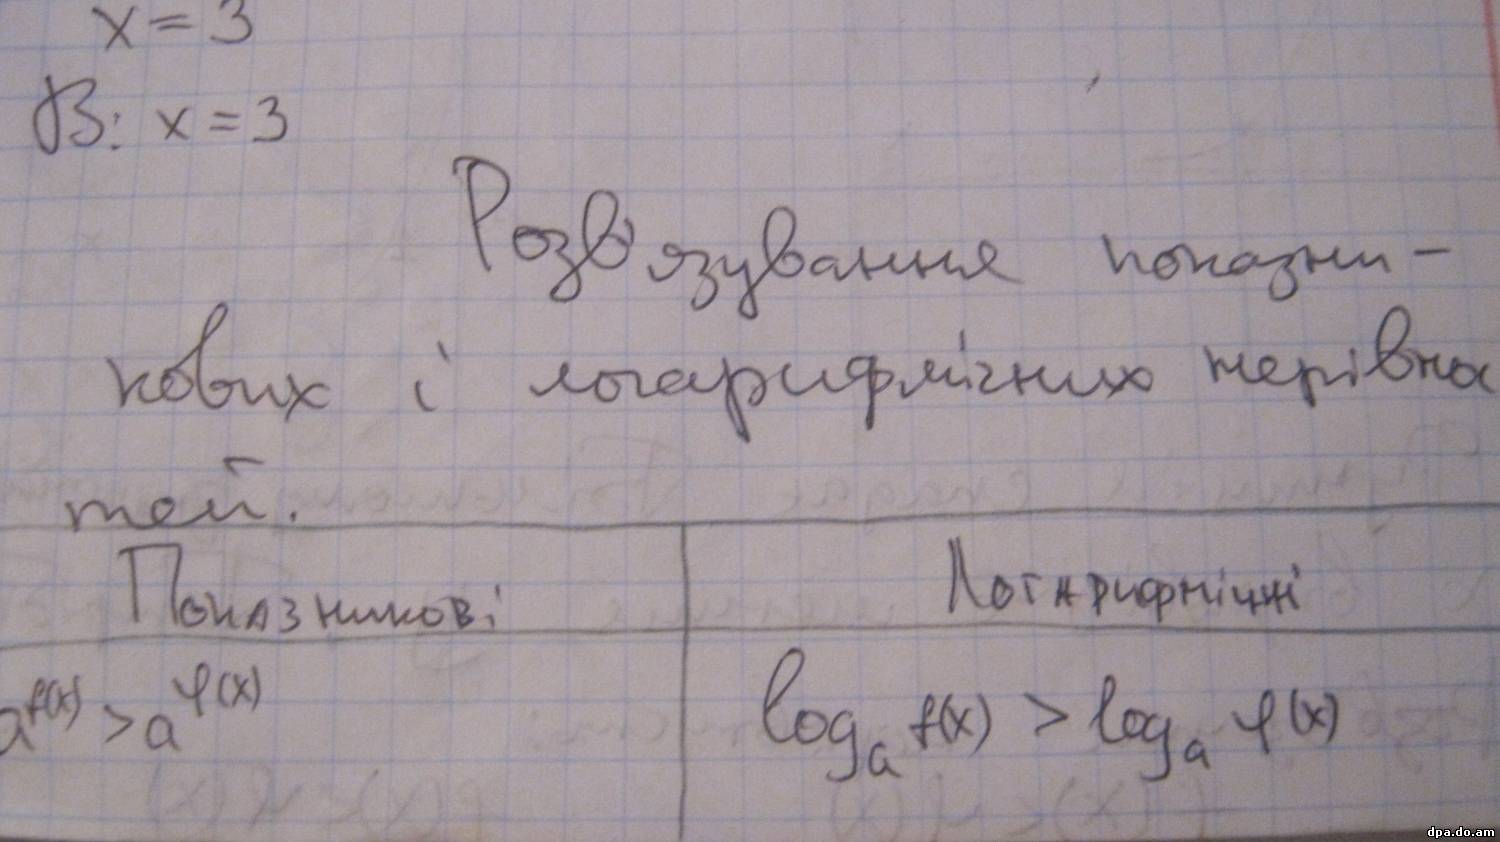 x = 3
В: x = 3
Розв'язування показни-
кових і логарифмічних нерівнос
тей.
Показникові Логарифмічні
a^f(x) > a^φ(x) log_a f(x) > log_a φ(x)
dpa.do.am